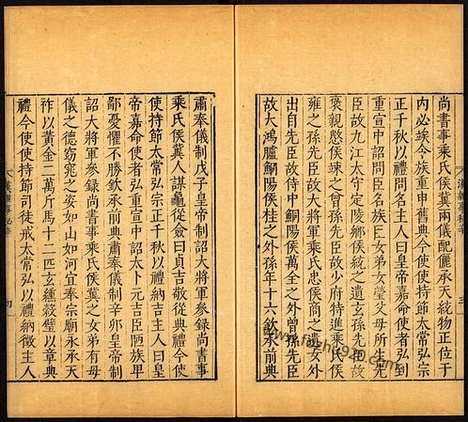 尚書事乘氏侯冀曰儀配儷承天統物正位于
內必竢令族重申舊典今使使持節太常弘宗
正千秋以禮問名主人曰皇帝嘉命使者弘到
重宣中詔問臣名族臣女弟女瑩父母所生先
臣故九江太守定陵鄉侯統之遺玄孫先臣故
襃親愍侯竦之曾孫先臣故少府特進乘氏侯
雍之孫先臣故大將軍乘氏忠侯商之遺女外
出自先臣故侍中鮦陽侯慶外曾孫先臣
故大鴻臚鮦陽侯桂之外孫年十六欽承前典
肅奉儀制戊子皇帝制大將軍參錄尚書事
乘氏侯冀人謀龜從僉曰貞吉敬從典禮今使
使持節太常弘宗正千秋以禮納吉主人曰皇
帝嘉命使者弘重宣中詔太卜元吉臣陋族卑
鄙憂懼不勝欽承前典肅奉儀制辛卯皇帝制
詔大將軍參錄尚書事乘氏侯冀之女弟有母
儀之德窈窕之姿如山如河宜奉宗廟永承天
祚以黃金二萬斤馬十二匹玄纁穀璧以章典
禮今使使持節司徒戒太常弘以禮納徵主人